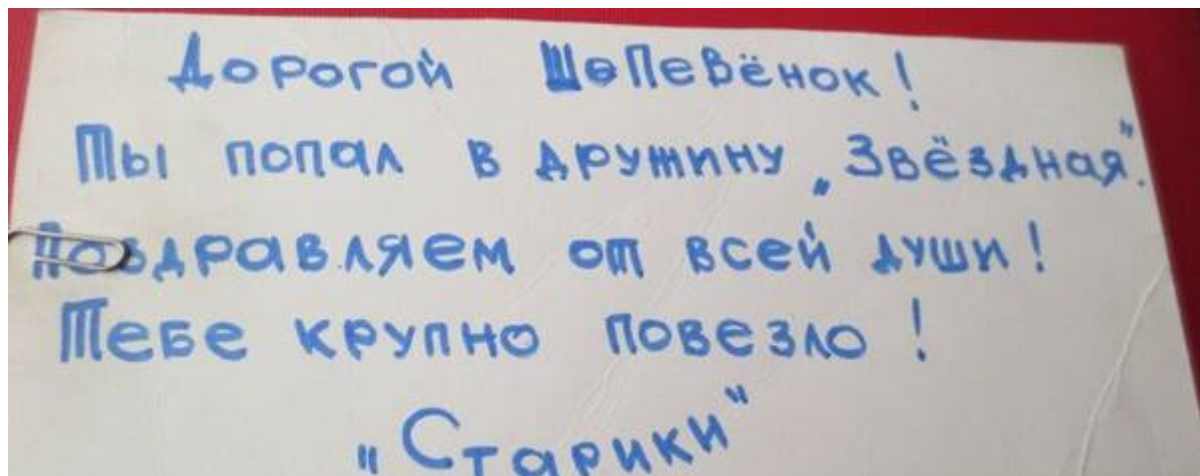 Дорогой Шопевёнок!
Ты попал в дружину „Звёздная".
Поздравляем от всей души!
Тебе крупно повезло!
„Старики"